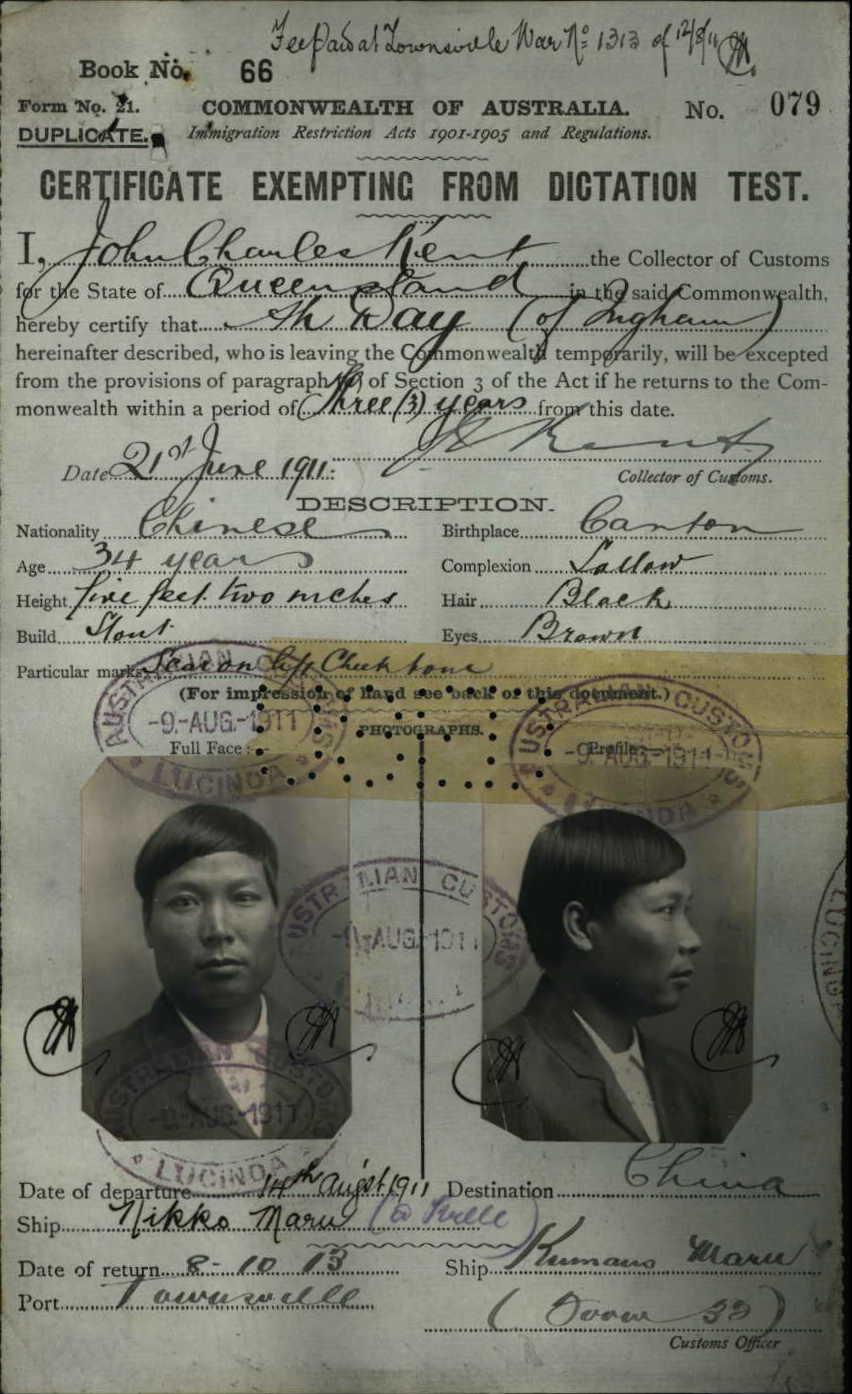 Fee Paid at Townsville War No: 1313 of 12/8/11
Book No. 66
Form No. 21.
COMMONWEALTH OF AUSTRALIA.
No. 079
DUPLICATE.
Immigration Restriction Acts 1901-1905 and Regulations.
CERTIFICATE EXEMPTING FROM DICTATION TEST.
I, John Charles Kent the Collector of Customs
for the State of Queensland in the said Commonwealth,
hereby certify that Ah Day (of Ingham)
hereinafter described, who is leaving the Commonwealth temporarily, will be excepted
from the provisions of paragraph (a) of Section 3 of the Act if he returns to the Com-
monwealth within a period of Three (3) years from this date.
Date 21st June 1911.
Collector of Customs.
DESCRIPTION.
Nationality Chinese
Birthplace Canton
Age 34 years
Complexion Sallow
Height five feet two inches
Hair Black
Build Stout
Eyes Brown
Particular marks Scar on left Cheek bone
(For impression of hand see back of this document.)
PHOTOGRAPHS.
Full Face:-
Profile:-
AUSTRALIAN CUSTOMS
-9.-AUG.-1911
LUCINDA
AUSTRALIAN CUSTOMS
-9-AUG-1911-
LUCINDA
AUSTRALIAN CUSTOMS
AUG 1911
LUCINDA
AUSTRALIAN CUSTOMS
-9-AUG-1911
LUCINDA
Date of departure 14th Augst 1911
Destination China
Ship Nikko Maru
Date of return 8-10 13
Ship Kumano Maru
Port Townsville
Customs Officer